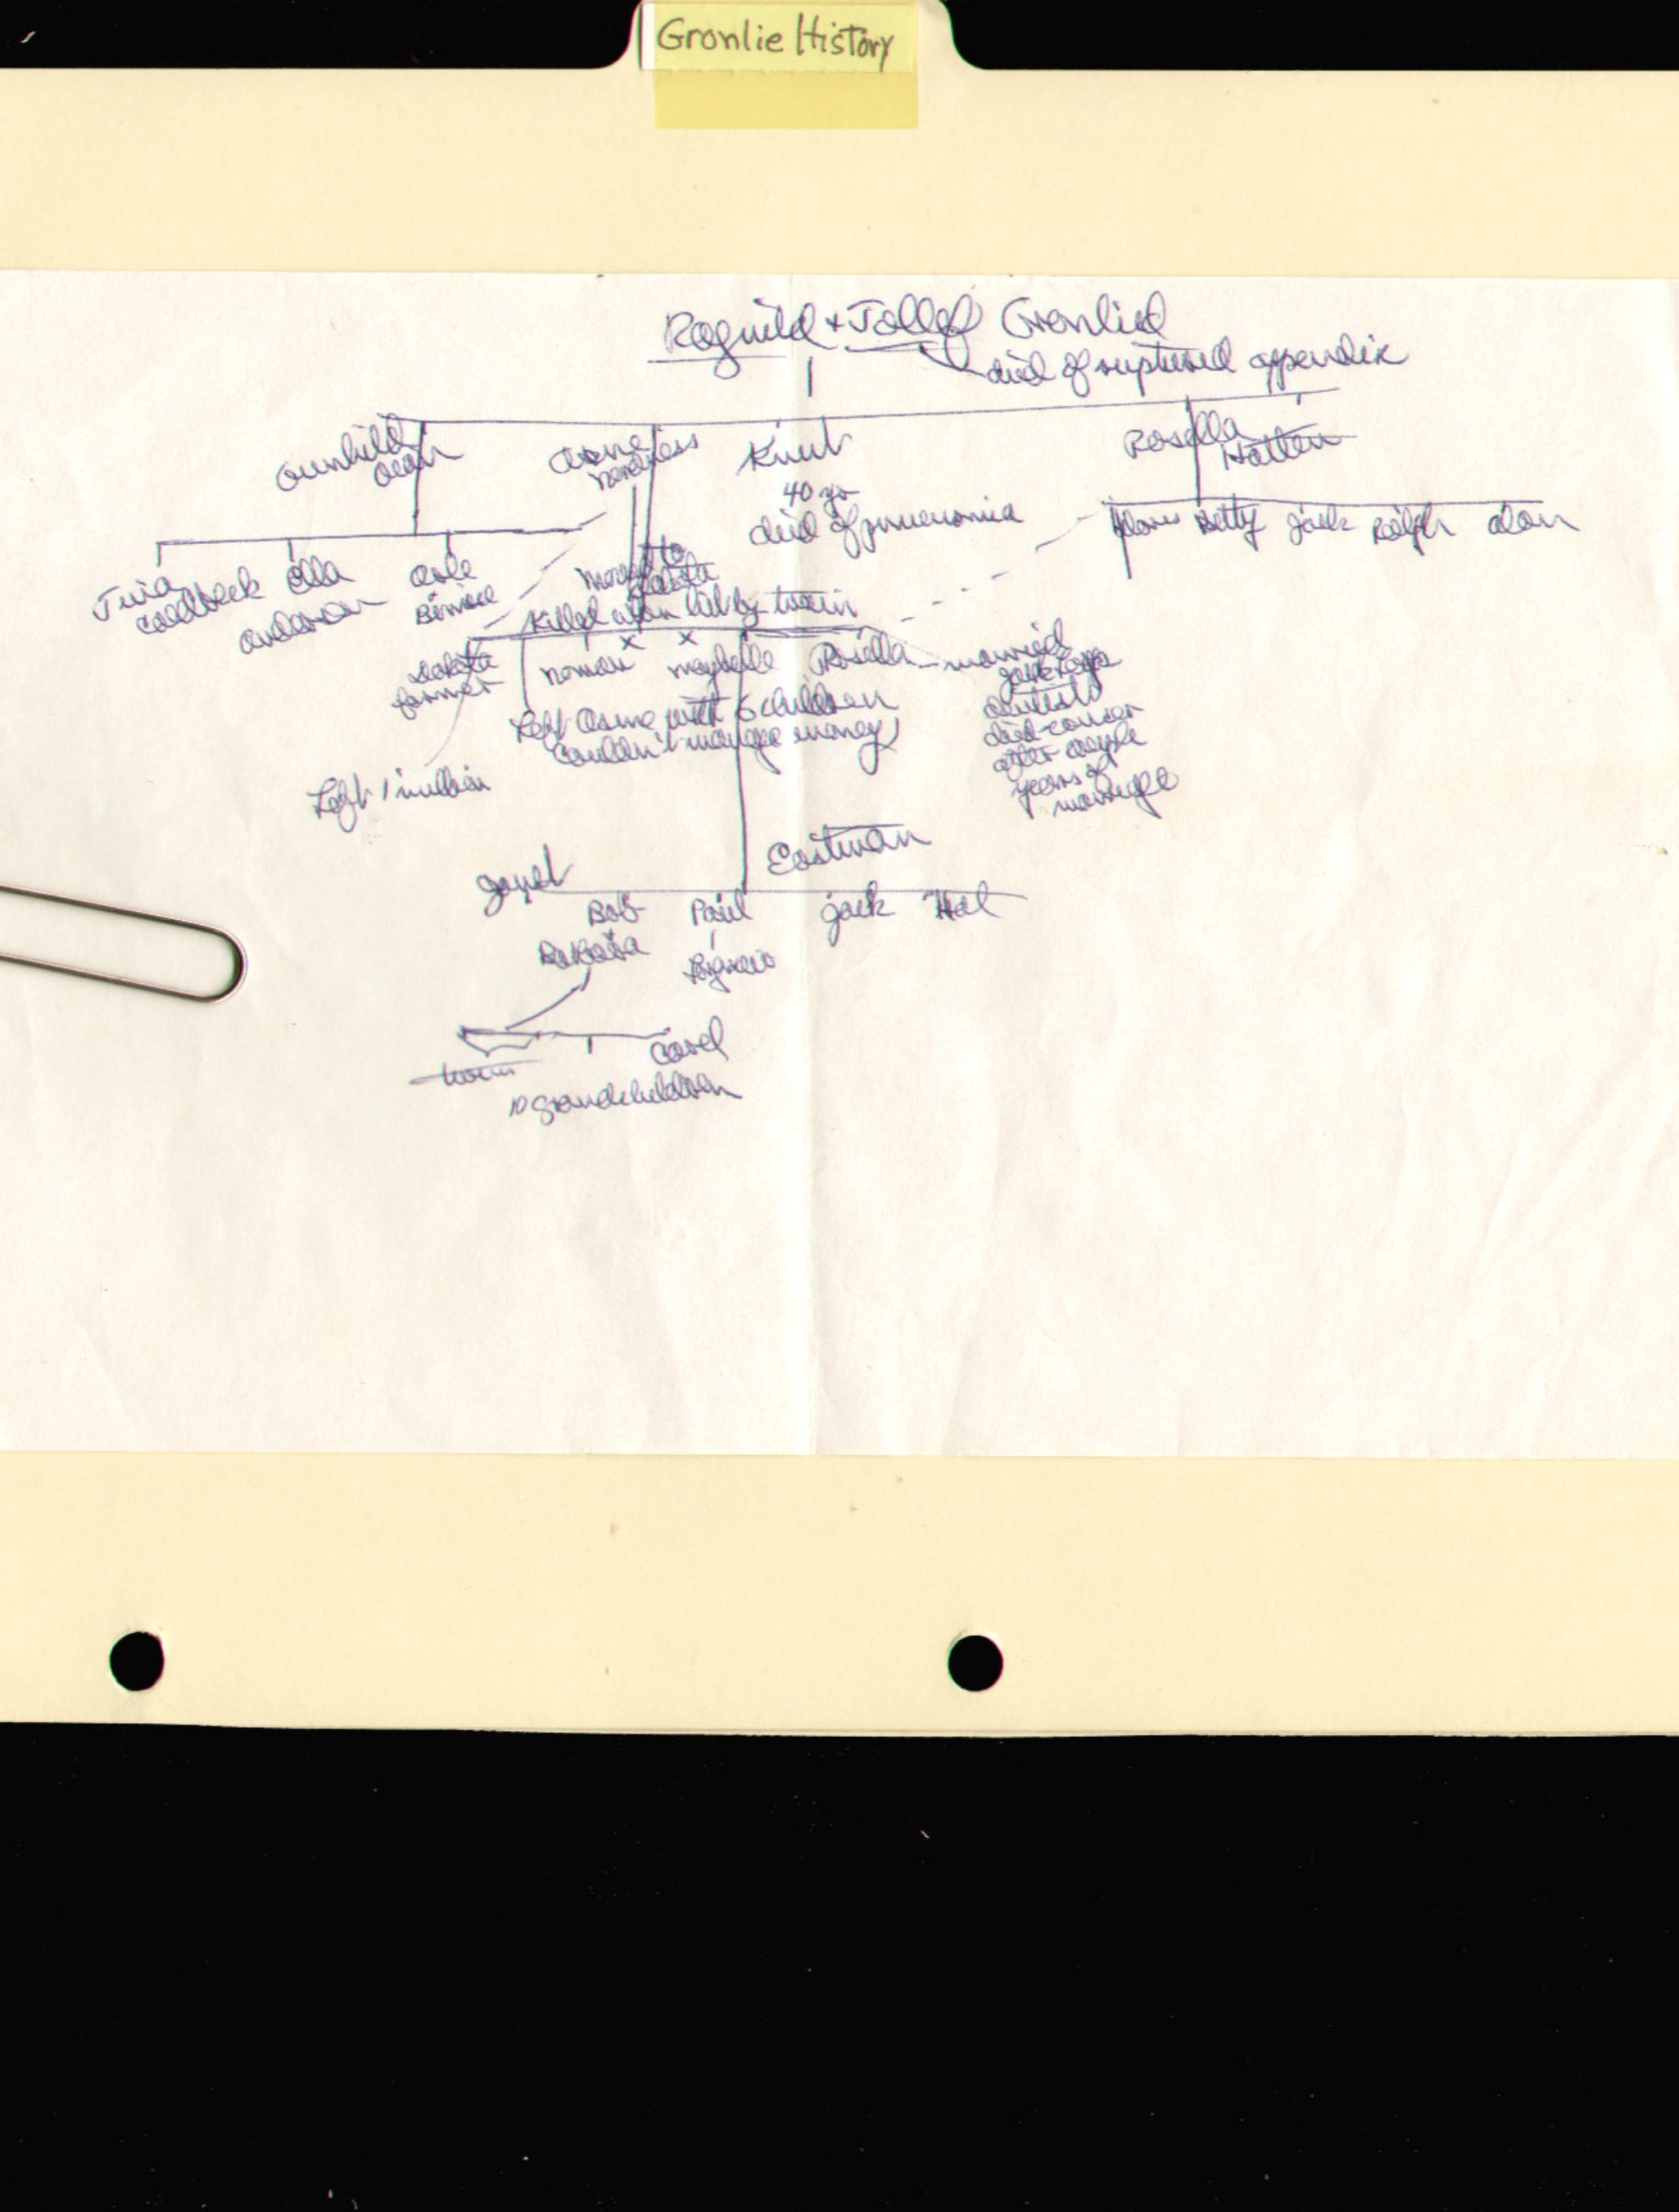 Gronlie History
Ragnild + Tollef Gronlied
died of ruptured appendix
Gunhild
Arne
Knut
Rosella
Hatten
40 yr
died of pneumonia
Betty Jack Ralph Alan
Tina
Ella
Bernice
Anderson
moved to
Dakota
Killed when hit by train
x x
Dakota
farmer
Norman maybelle Rosella - married
dentist
died cancer
after couple
years of
marriage
Left Arne with 6 children
Couldn't manage money
Left 1 million
Eastman
Bob Paul Jack Hal
Barbara
Carol
10 grandchildren